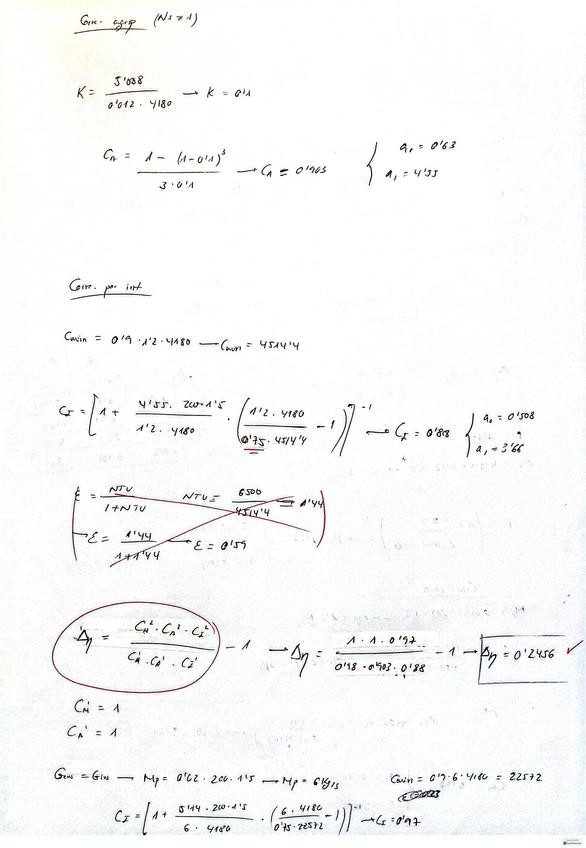 Corr. agrup (Ns ≠ 1)
K = 5'038 / 0'012 · 4180 → K = 0'1
CA = 1 - (1-0'1)³ / 3·0'1 → CA = 0'903 { a₀ = 0'63
a₁ = 4'55
Corr. por int
Cmin = 0'9 · 1'2 · 4180 → Cmin = 4514'4
CI = [1 + 4'55 · 200·1'5 / 1'2 · 4180 · (1'2 · 4180 / 0'75 · 4514'4 - 1)]⁻¹ → CI = 0'88 { a₀ = 0'508
a₁ = 3'66
ε = NTU / 1+NTU NTU = 6500 / 4514'4 = 1'44
→ ε = 1'44 / 1+1'44 → ε = 0'59
Δη = CM² · CA² · CI² / CM¹ · CA¹ · CI¹ - 1 → Δη = 1 · 1 · 0'97 / 0'98 · 0'903 · 0'88 - 1 → Δη = 0'2456
CM² = 1
CA² = 1
→ Mp = 0'02 · 200 · 1'5 → Mp = 6 kg/s Cmin = 0'9 · 6 · 4180 = 22572
CI = [1 + 5'14 · 200 · 1'5 / 6 · 4180 · (6 · 4180 / 0'75 · 22572 - 1)]⁻¹ → CI = 0'97